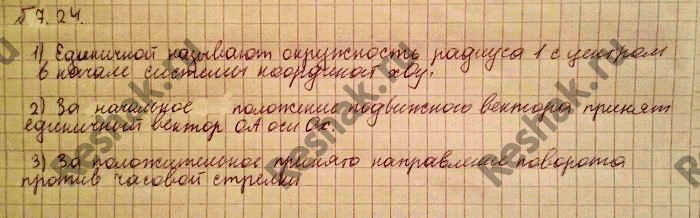 № 7.24.
1) Единичной называют окружность радиуса 1 с центром
в начале системы координат xOy.
2) За начальное положение подвижного вектора принят
единичный вектор OA оси Ox.
3) За положительное принято направление поворота
против часовой стрелки
Reshak.ru
Reshak.ru
Reshak.ru
Reshak.ru